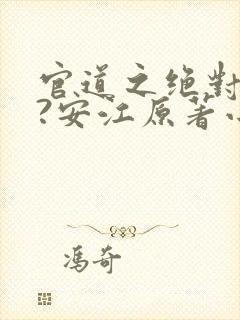 官道之绝對
?安江原著小
馮奇